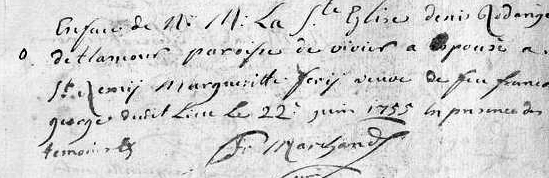 En face de N: M: La Ste Eglise denis Rodange
de flamour paroisse de vivier a Epousé a
St. Remij Margueritte feris veuve de feu francois
george dudit Lieu le 22e juin 1755 en presence des
temoins
f: Marchand